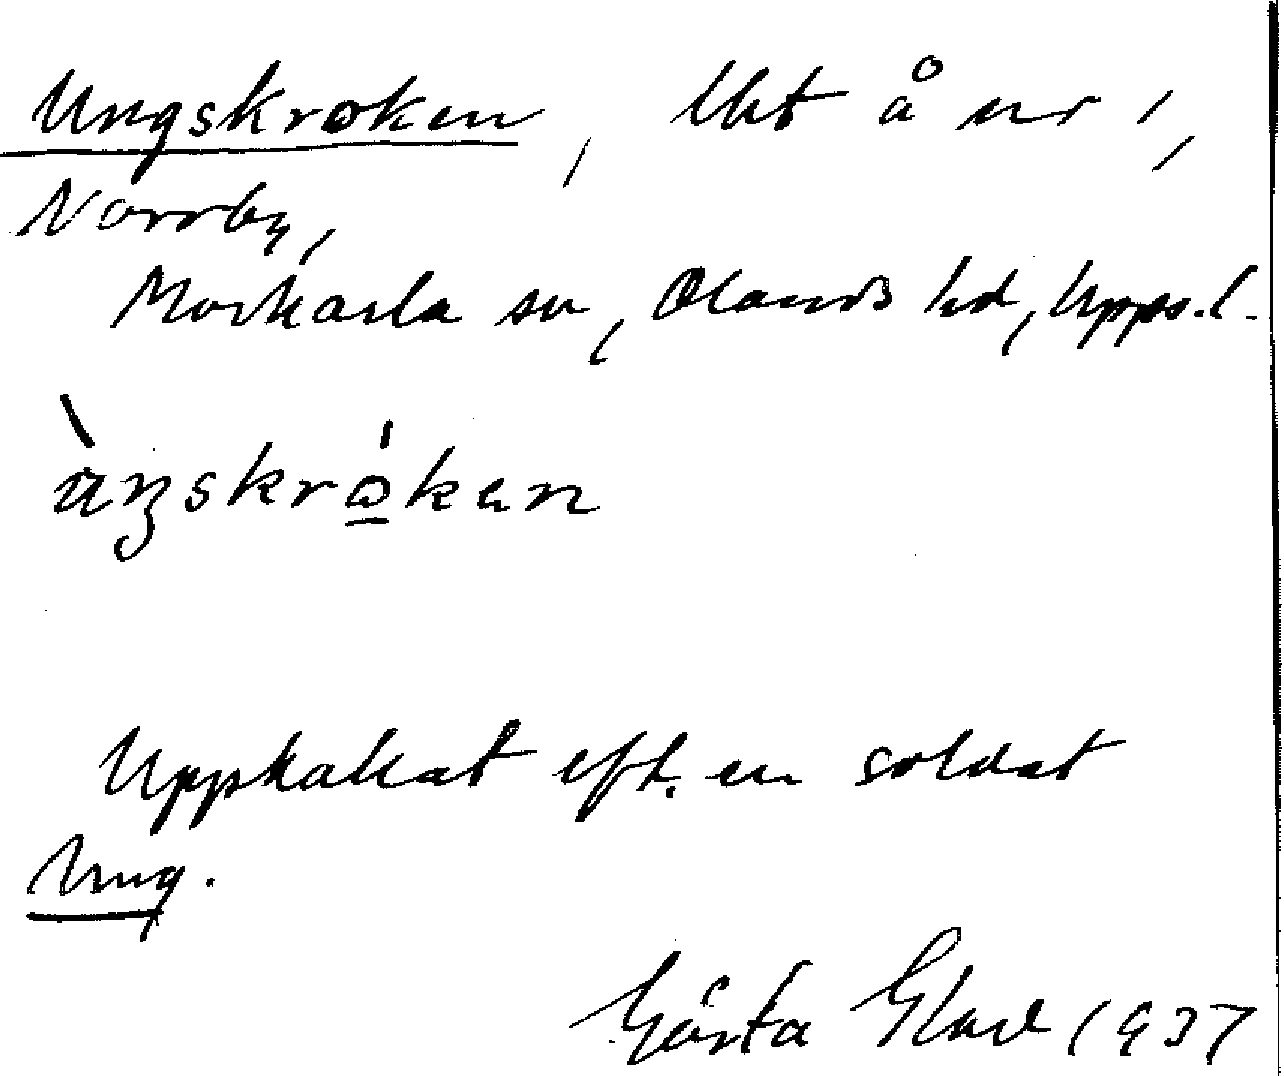 Ungskroken, Ukt å nr 1,
Norrby,
Morkarla sn, Olands hd, Upps. l.
Uppkallat eft. en soldat
Ung.
Gösta 1937